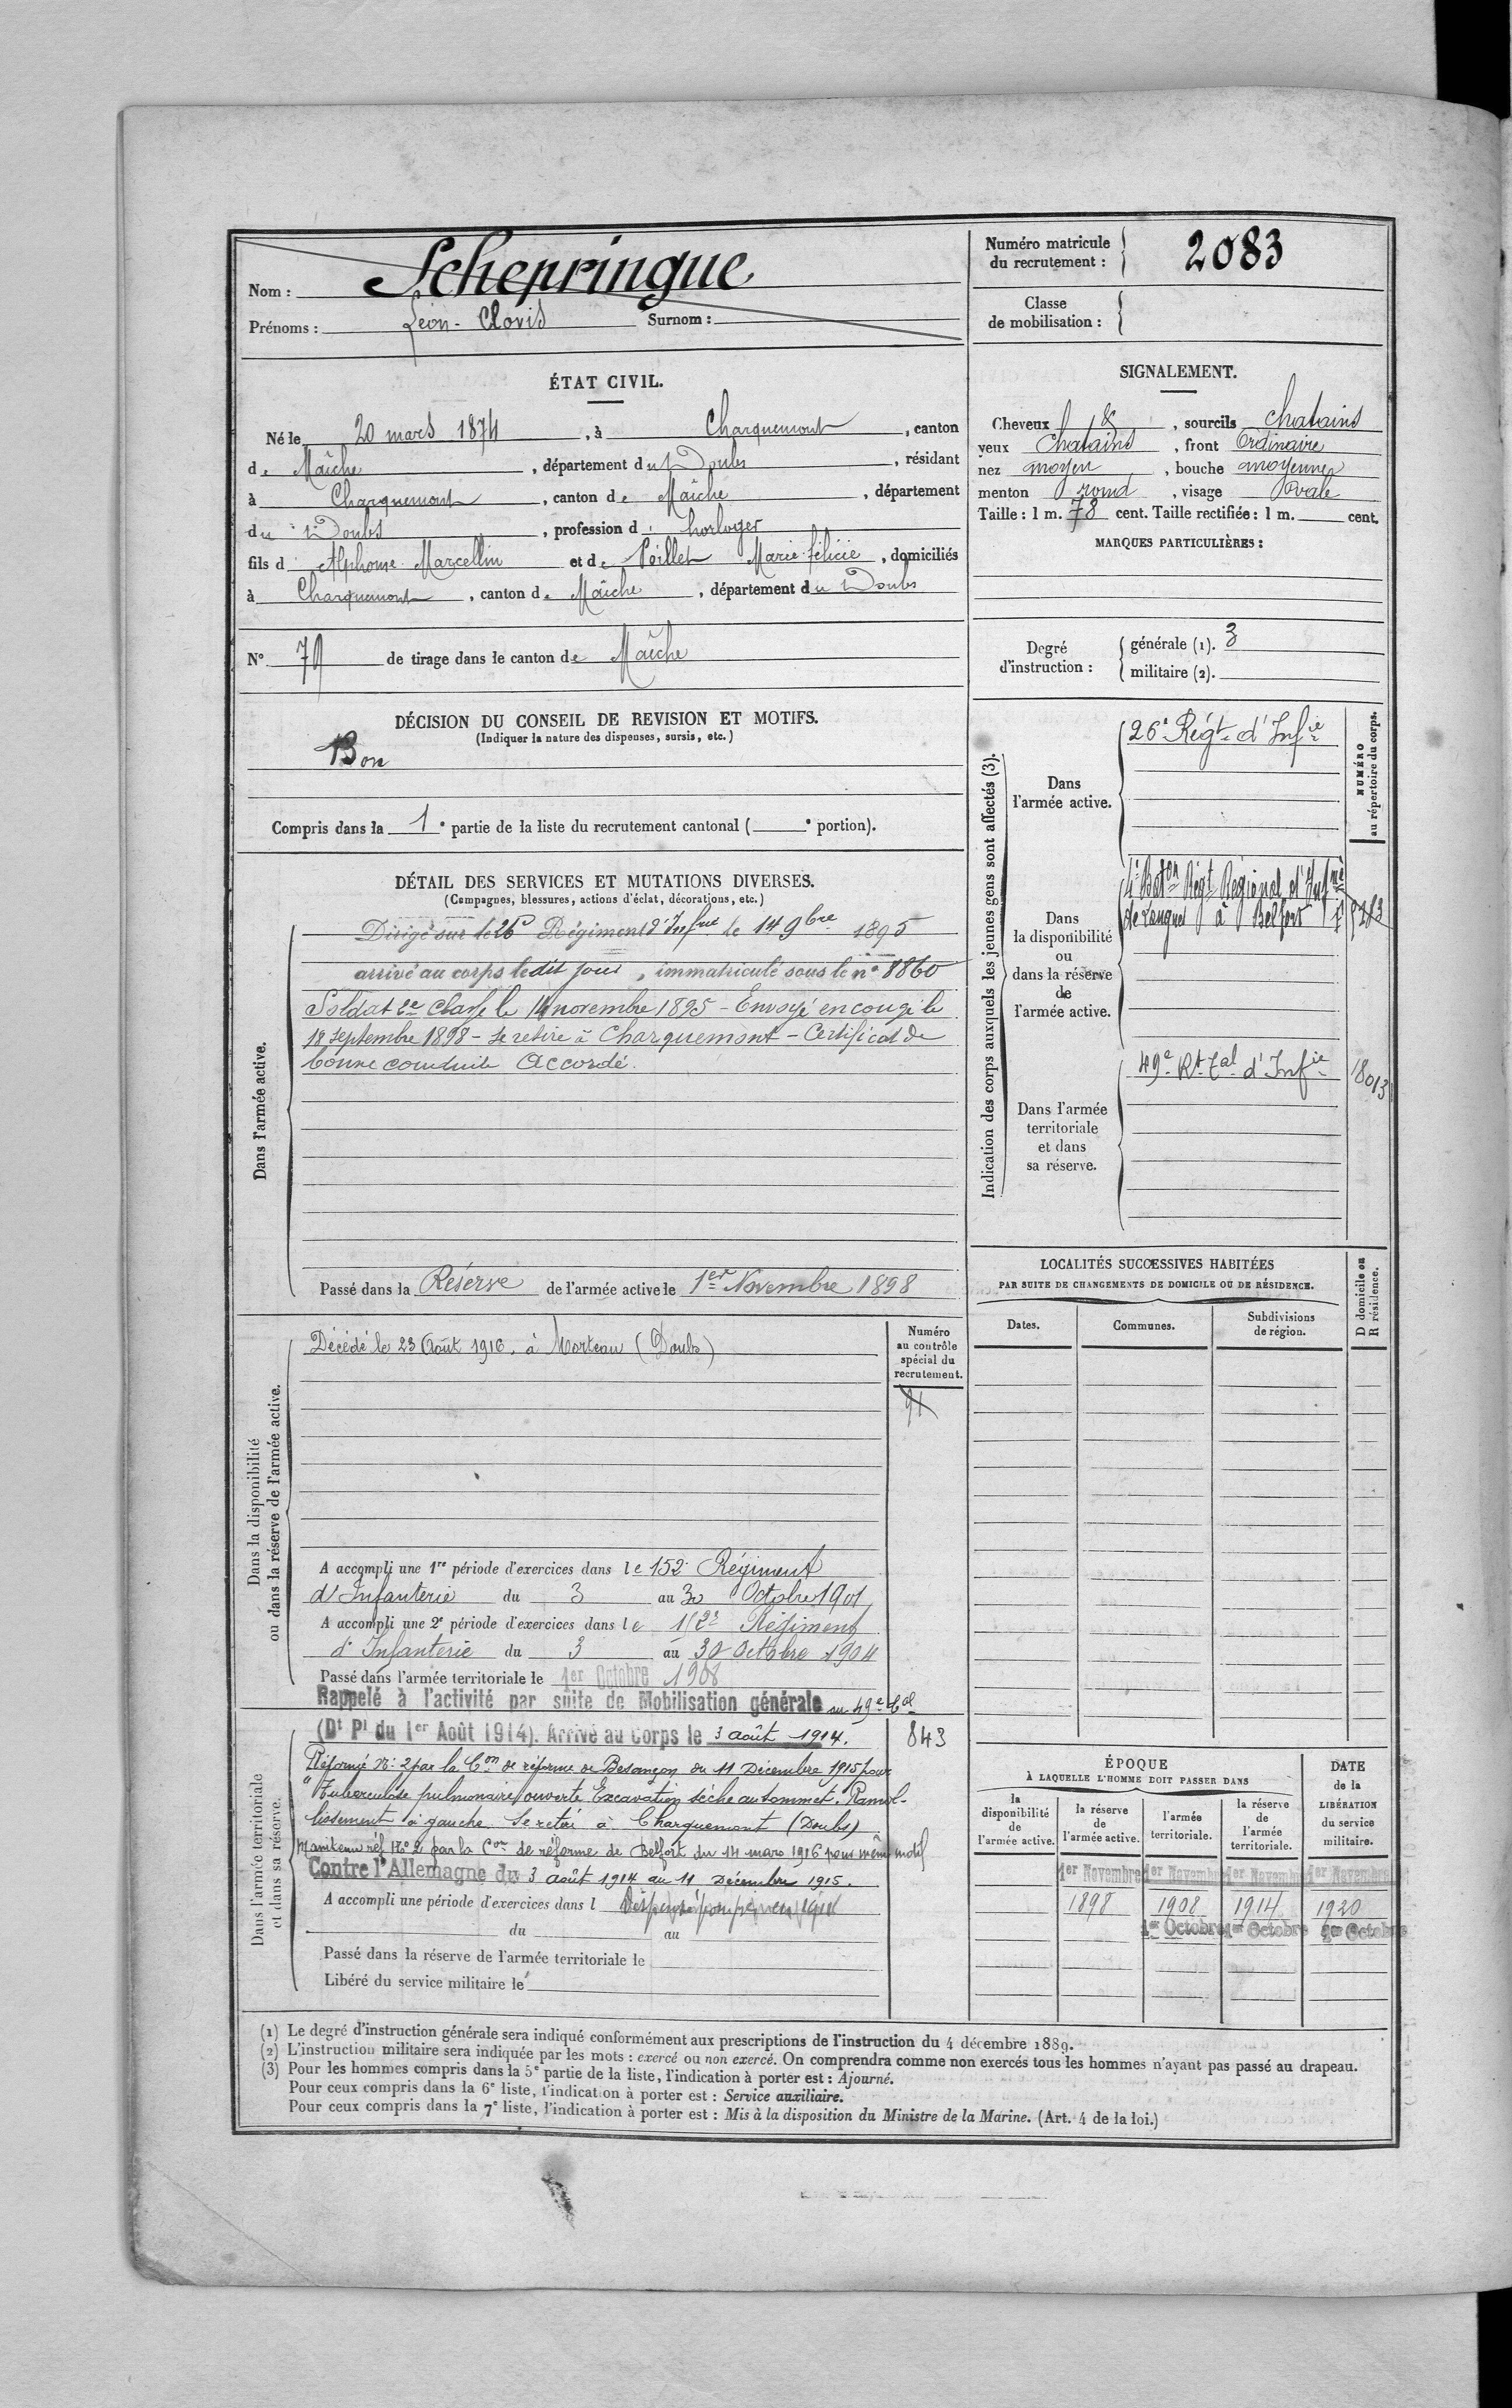 Nom : Schepringue
Prénoms : Léon - Clovis Surnom :
Numéro matricule du recrutement : 2083
Classe de mobilisation :
ÉTAT CIVIL.
Né le 20 mars 1874, à Charquemont, canton
de Maîche, département du Doubs, résidant
à Charquemont, canton de Maîche, département
du Doubs, profession d' horloger
fils d' Alphonse Marcellin et de Poillet Marie Félicie, domiciliés
à Charquemont, canton de Maîche, département du Doubs
N° 79 de tirage dans le canton de Maîche
SIGNALEMENT.
Cheveux & , sourcils chatains
yeux chatains , front ordinaire
nez moyen , bouche moyenne
menton rond , visage ovale
Taille : 1 m. 78 cent. Taille rectifiée : 1 m. cent.
MARQUES PARTICULIÈRES :
Degré d'instruction : générale (1). 3
militaire (2).
DÉCISION DU CONSEIL DE REVISION ET MOTIFS.
(Indiquer la nature des dispenses, sursis, etc.)
Bon
Compris dans la 1e partie de la liste du recrutement cantonal ( e portion).
DÉTAIL DES SERVICES ET MUTATIONS DIVERSES.
(Campagnes, blessures, actions d'éclat, décorations, etc.)
Dans l'armée active.
Dirigé sur le 26e Régiment d'Infrie le 14 9bre 1895
arrivé au corps le dit jour, immatriculé sous le n° 8860
Soldat 2e classe le 14 novembre 1895 - Envoyé en congé le
18 septembre 1898 - se retire à Charquemont - Certificat de
bonne conduite Accordé.
Passé dans la Réserve de l'armée active le 1er Novembre 1898
Indication des corps auxquels les jeunes gens sont affectés (3).
NUMÉRO au répertoire du corps.
Dans l'armée active.
26e Régt d'Infie
Dans la disponibilité ou dans la réserve de l'armée active.
4e Baton Régt Régional d'Infrie
de Langres à Belfort
Dans l'armée territoriale et dans sa réserve.
49e Rt Tal d'Infie 18013
LOCALITÉS SUCCESSIVES HABITÉES
PAR SUITE DE CHANGEMENTS DE DOMICILE OU DE RÉSIDENCE.
Dates. Communes. Subdivisions de région. D domicile ou R résidence.
Dans la disponibilité ou dans la réserve de l'armée active.
Numéro au contrôle spécial du recrutement.
Décédé le 23 Août 1916. à Morteau (Doubs)
A accompli une 1re période d'exercices dans le 152e Régiment
d'Infanterie du 3 au 30 Octobre 1901
A accompli une 2e période d'exercices dans le 152e Régiment
d'Infanterie du 3 au 30 Octobre 1904
Passé dans l'armée territoriale le 1er Octobre 1908
Rappelé à l'activité par suite de Mobilisation générale au 49e tal
(Dt Pl du 1er Août 1914). Arrivé au Corps le 3 août 1914. 843
Dans l'armée territoriale et dans sa réserve.
Réformé N: 2 par la Con de réforme de Besançon du 11 Décembre 1915 pour
"Tuberculose pulmonaire ouverte Excavation sèche au sommet. Ramol-
lissement à gauche Se retire à Charquemont (Doubs)
Maintenu réf No 2 par la Con de réforme de Belfort du 14 mars 1916 pour même motif
Contre l'Allemagne du 3 août 1914 au 11 Décembre 1915.
A accompli une période d'exercices dans l
du au
Passé dans la réserve de l'armée territoriale le
Libéré du service militaire le
ÉPOQUE
À LAQUELLE L'HOMME DOIT PASSER DANS
DATE de la LIBÉRATION du service militaire.
la disponibilité de l'armée active. la réserve de l'armée active. l'armée territoriale. la réserve de l'armée territoriale.
1er Novembre 1er Novembre 1er Novembre 1er Novembre
1898 1908 1914 1920
1er Octobre 1er Octobre 1er Octobre
(1) Le degré d'instruction générale sera indiqué conformément aux prescriptions de l'instruction du 4 décembre 1889.
(2) L'instruction militaire sera indiquée par les mots : exercé ou non exercé. On comprendra comme non exercés tous les hommes n'ayant pas passé au drapeau.
(3) Pour les hommes compris dans la 5e partie de la liste, l'indication à porter est : Ajourné.
Pour ceux compris dans la 6e liste, l'indication à porter est : Service auxiliaire.
Pour ceux compris dans la 7e liste, l'indication à porter est : Mis à la disposition du Ministre de la Marine. (Art. 4 de la loi.)